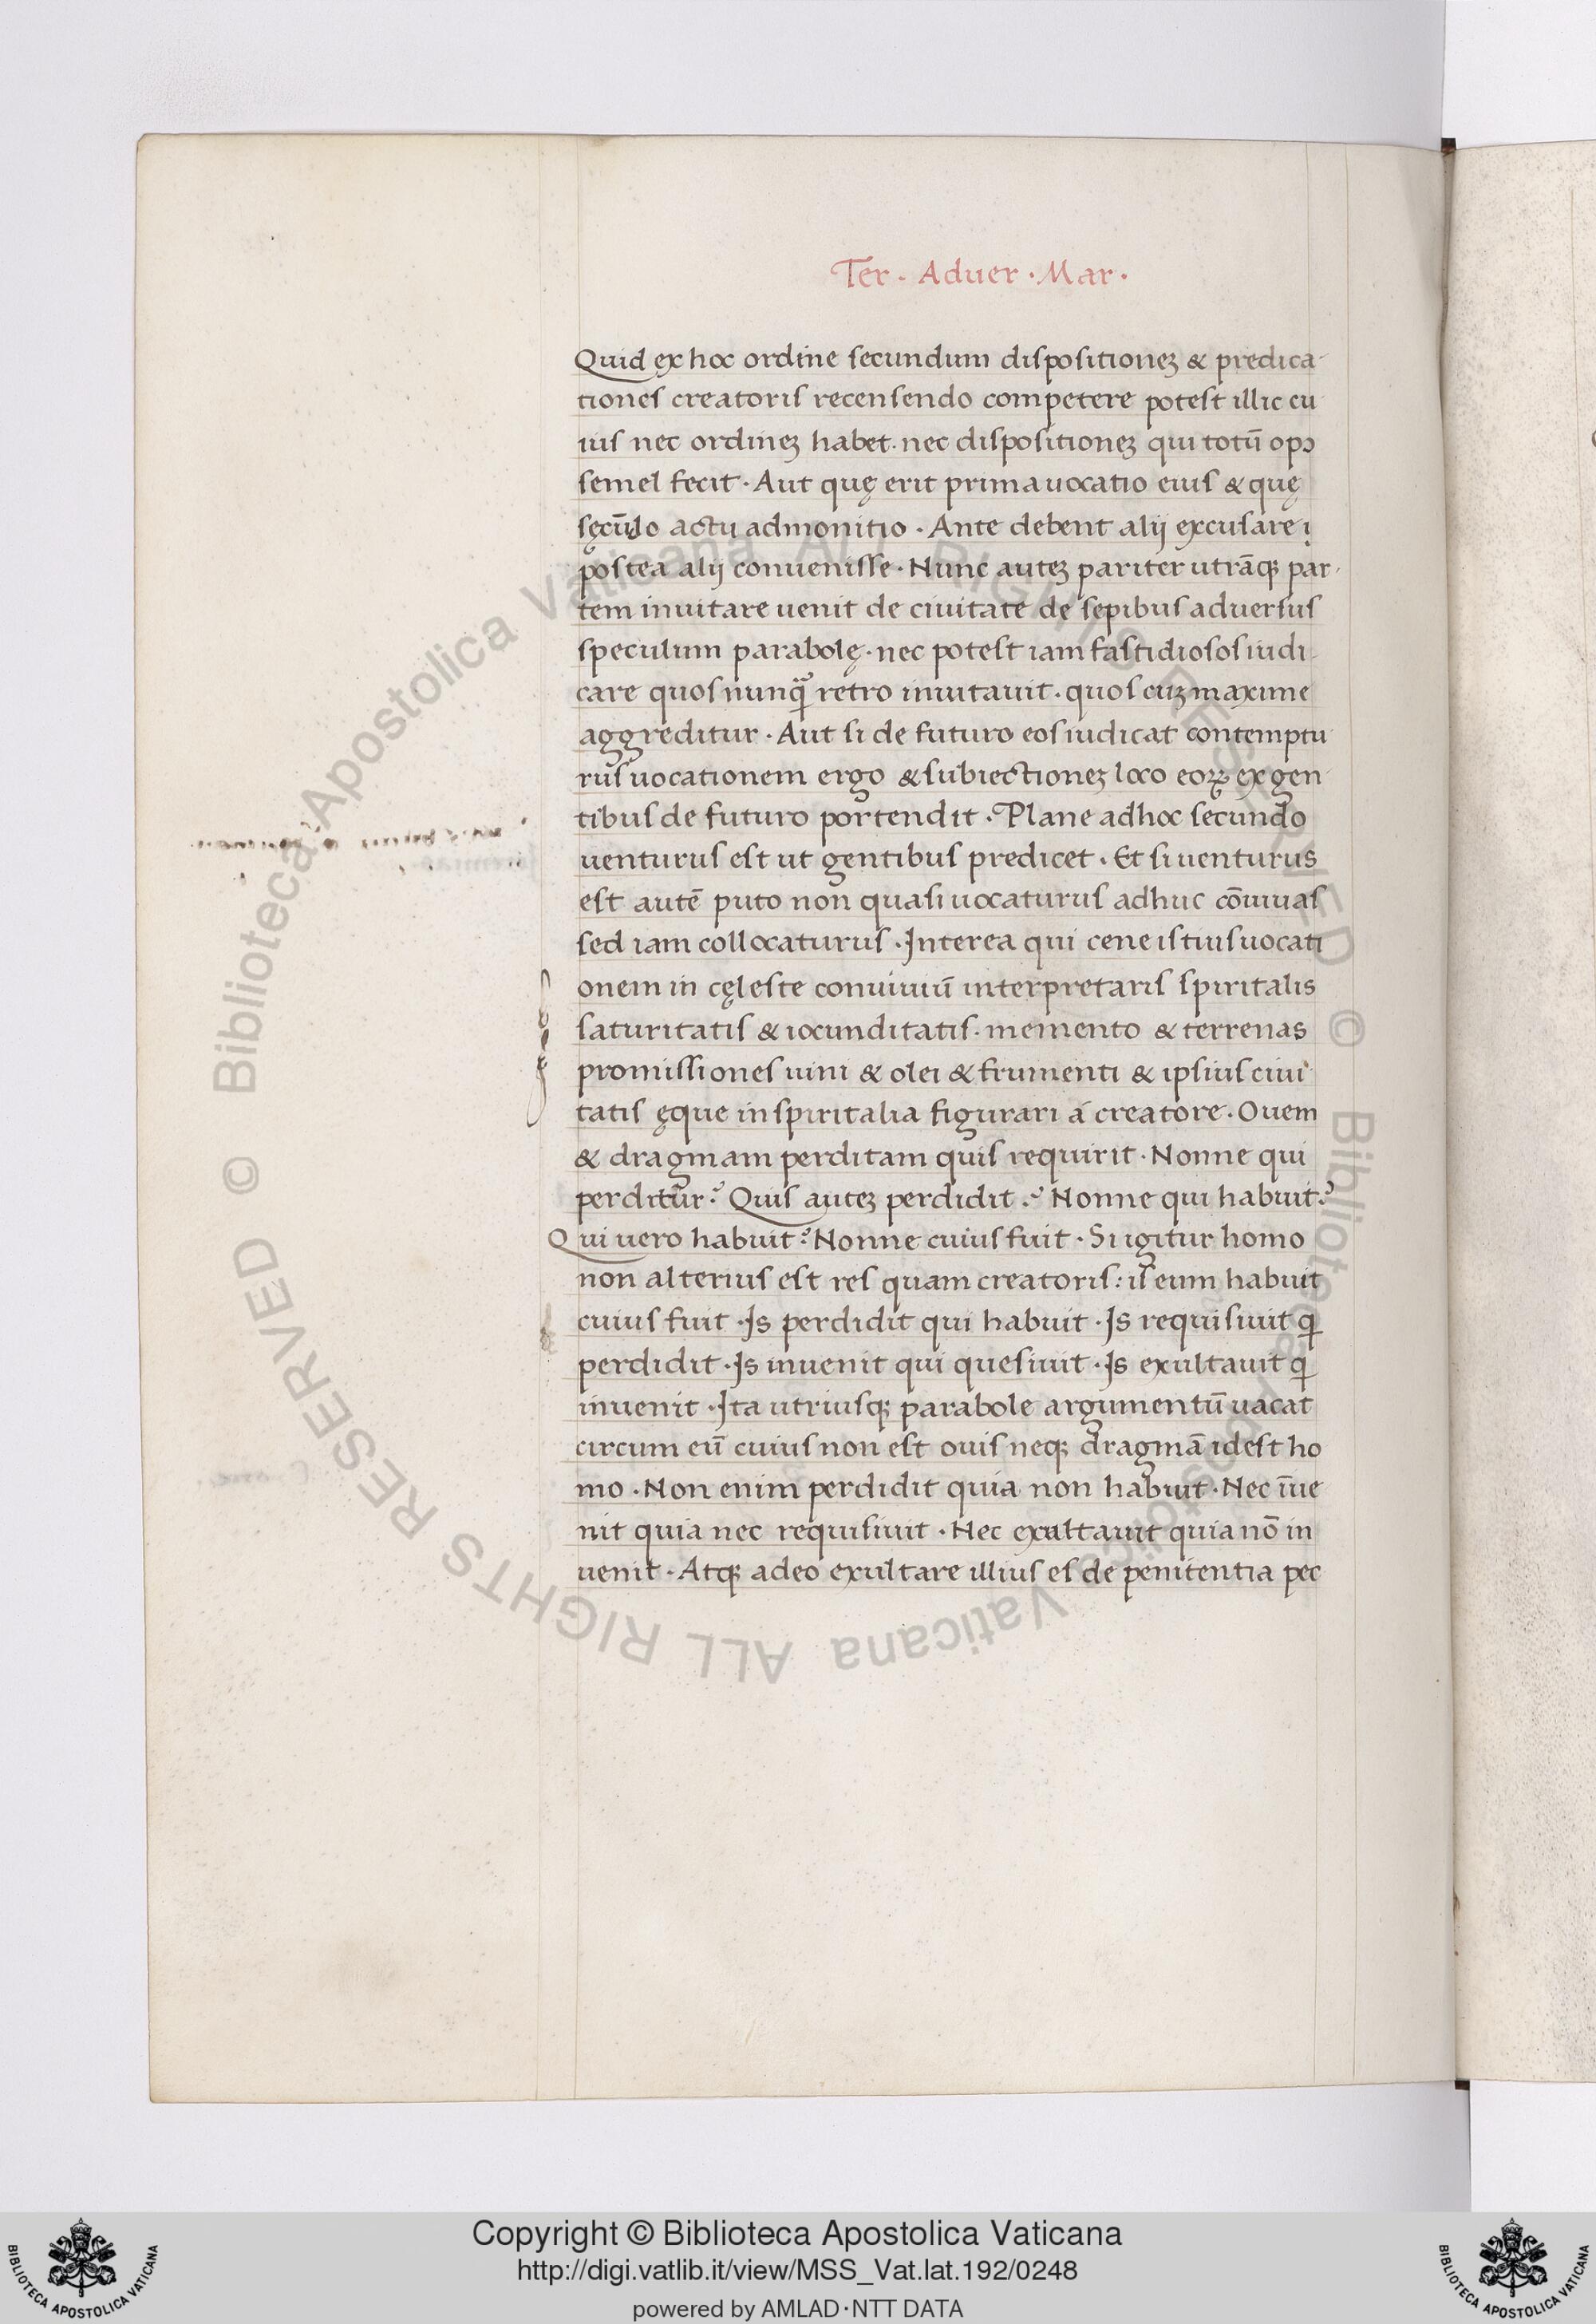 Ter. Aduer. Mar.
Quid ex hoc ordine secundum dispositioneꝫ & predica-
tiones creatoris recensendo competere potest illic cu
ius nec ordineꝫ habet. nec dispositioneꝫ qui totū opꝰ
semel fecit. Aut quę erit prima uocatio eius & quę
sęcūdo actu admonitio. Ante debent alij excusare ı
postea alij conuenisse. Nunc auteꝫ pariter utrāqꝫ par-
tem inuitare uenit de ciuitate de sepibus aduersus
speculum parabolę. nec potest iam fastidiosos iudi-
care quos nunꝙ̃ retro inuitauit. quos cuꝫ maxime
aggreditur. Aut si de futuro eos iudicat contemptu
rus uocationem ergo & subiectioneꝫ loco eoꝝ ex gen
tibus de futuro portendit. Plane adhoc secundo
uenturus est ut gentibus predicet. Et si uenturus
est autē puto non quasi uocaturus adhuc cōuiuas
sed iam collocaturus. Interea qui cene istius uocati
onem in cęleste conuiuiū interpretaris spiritalis
saturitatis & iocunditatis. memento & terrenas
promissiones uini & olei & frumenti & ipsius ciui
tatis ęque in spiritalia figurari á creatore. Ouem
& dragmam perditam quis requirit. Nonne qui
perditur? Quis auteꝫ perdidit? Nonne qui habuit?
Qui uero habuit? Nonne cuius fuit. Si igitur homo
non alterius est res quam creatoris: is eum habuit
cuius fuit. Is perdidit qui habuit. Is requisiuit ꝗ
perdidit. Is inuenit qui quesiuit. Is exultauit ꝗ
inuenit. Ita utriusqꝫ parabole argumentū uacat
circum eū cuius non est ouis neqꝫ dragmā idest ho
mo. Non enim perdidit quia non habuit. Nec īue
nit quia nec requisiuit. Nec exultauit quia nō in
uenit. Atqꝫ adeo exultare illius es de penitentia pec
© Biblioteca Apostolica Vaticana ALL RIGHTS RESERVED © Biblioteca Apostolica Vaticana ALL RIGHTS RESERVED
Copyright © Biblioteca Apostolica Vaticana
http://digi.vatlib.it/view/MSS_Vat.lat.192/0248
powered by AMLAD·NTT DATA
BIBLIOTECA APOSTOLICA VATICANA
BIBLIOTECA APOSTOLICA VATICANA